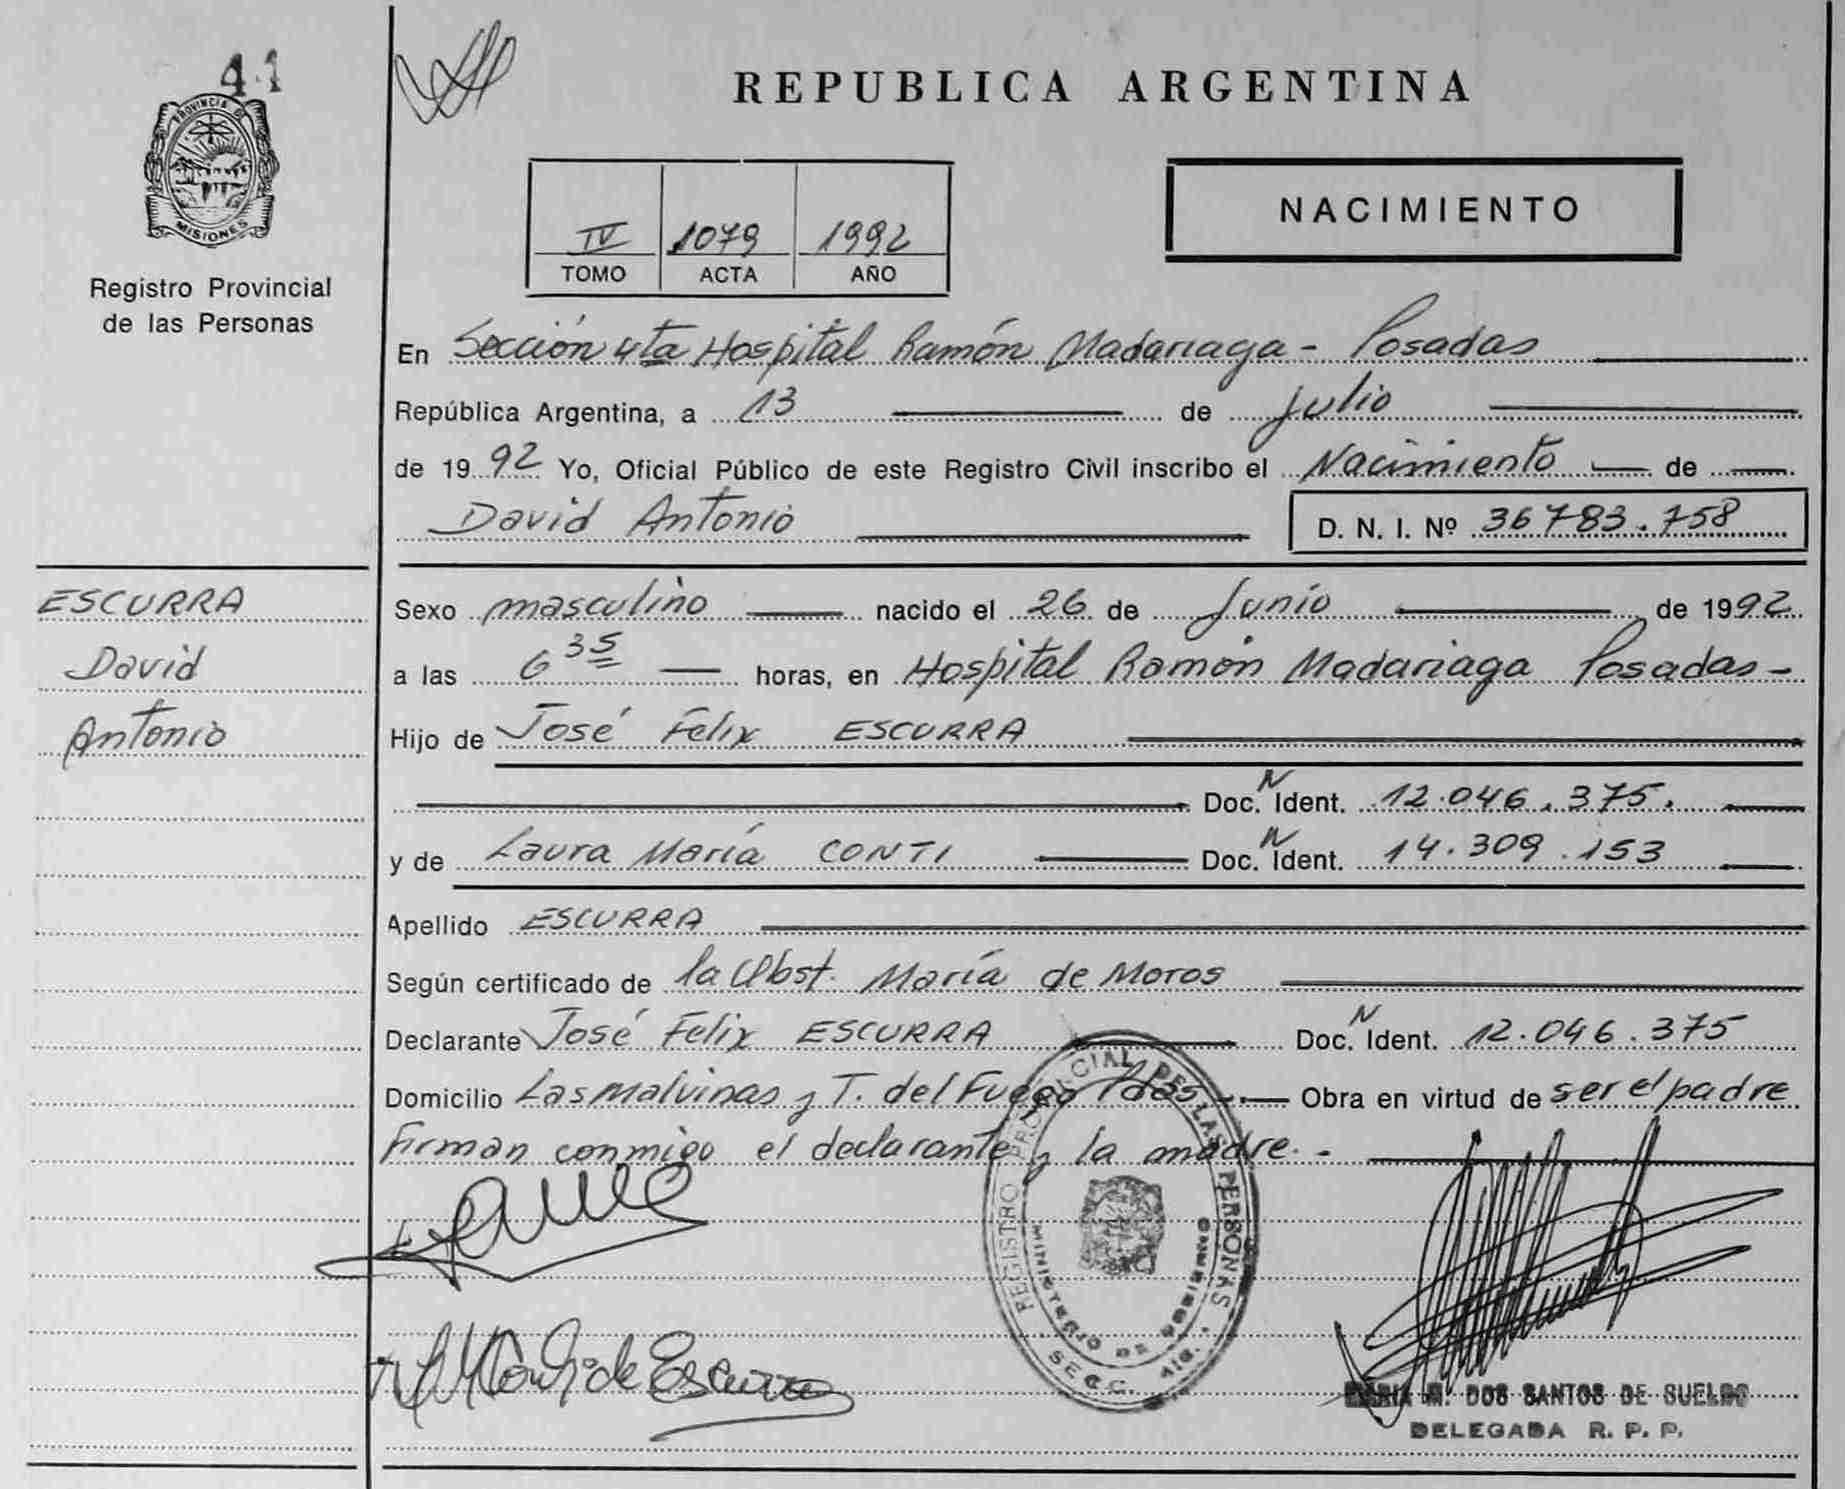 41
PROVINCIA DE
MISIONES
Registro Provincial
de las Personas
REPUBLICA ARGENTINA
IV 1079 1992
TOMO ACTA AÑO
NACIMIENTO
En Sección 4ta Hospital Ramón Madariaga - Posadas
República Argentina, a 13 de julio
de 1992 Yo, Oficial Público de este Registro Civil inscribo el Nacimiento de
David Antonio D. N. I. Nº 36783.758
ESCURRA
David
Antonio
Sexo masculino nacido el 26 de Junio de 1992
a las 6 35 horas, en Hospital Ramón Madariaga Posadas -
Hijo de José Felix ESCURRA
Doc. N Ident. 12.046.375.
y de Laura María CONTI Doc. N Ident. 14.309.153
Apellido ESCURRA
Según certificado de la Obst. María de Moros
Declarante José Felix ESCURRA Doc. N Ident. 12.046.375
Domicilio Las Malvinas y T. del Fuego Pdas - Obra en virtud de ser el padre
Firman conmigo el declarante y la madre. -
REGISTRO PROVINCIAL DE LAS PERSONAS
MINISTERIO DE GOBIERNO
M Conti de Escurra
DOS SANTOS DE SUELDO
DELEGADA R. P. P.